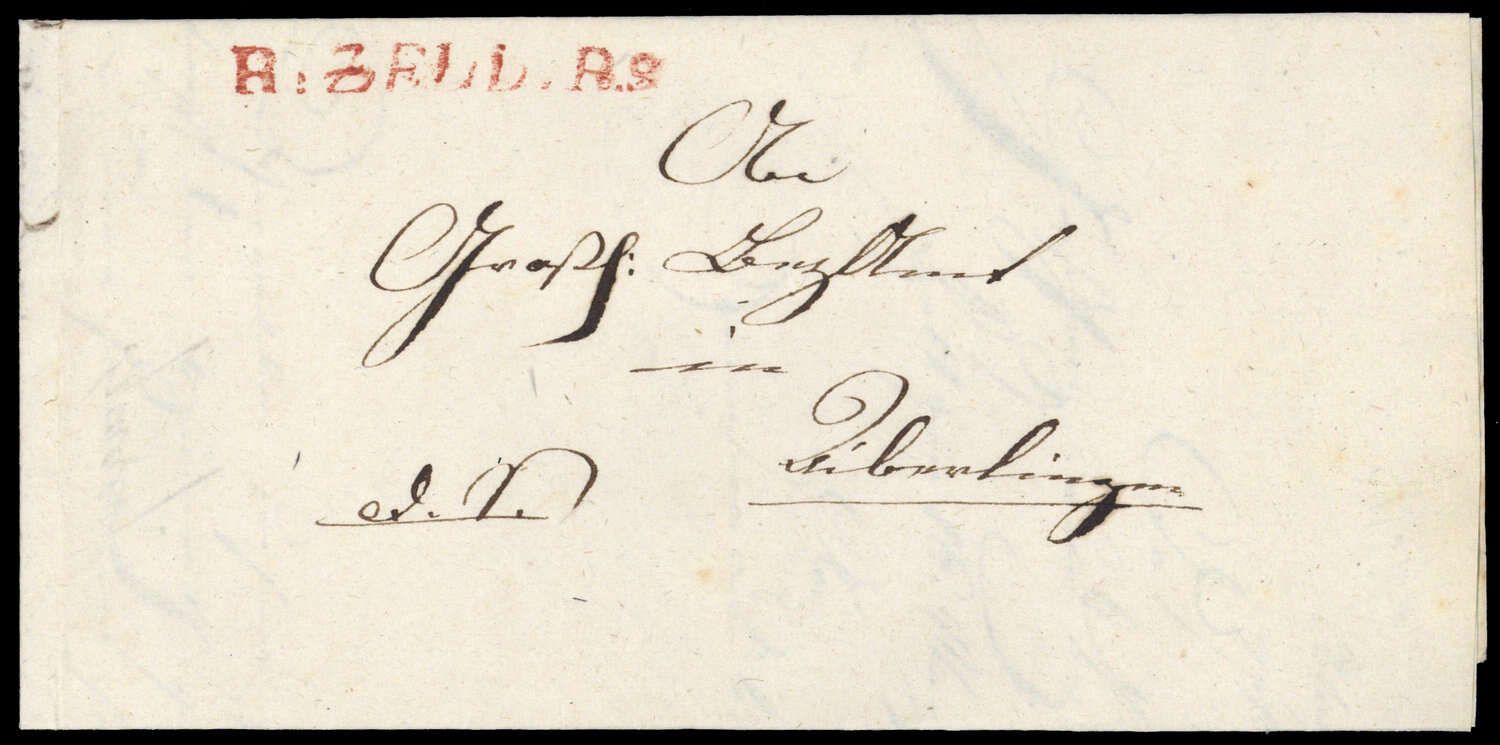 R. ZELL. R.2
An
Großh: BezAmt
in
Überlingen
d. S.